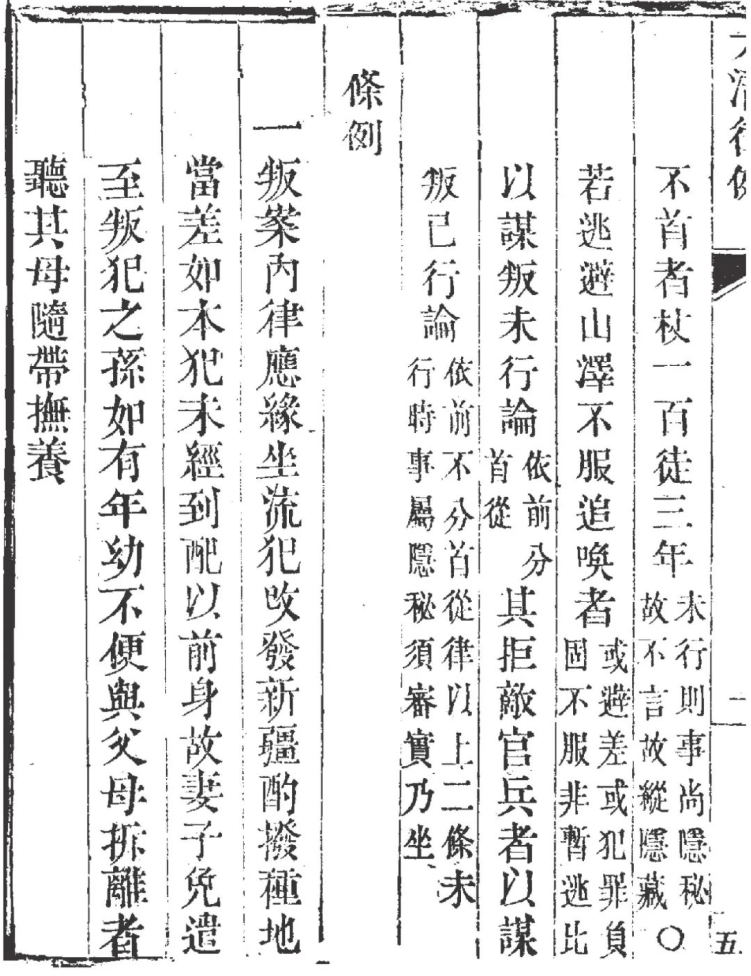 大清律例
五
不首者杖一百徒三年未行則事尚隱秘故不言故縱隱藏○
若逃避山澤不服追喚者或避差或犯罪負固不服非暫逃比
以謀叛未行論依前分首從其拒敵官兵者以謀
叛已行論依前不分首從律以上二條未行時事屬隱秘須審實乃坐
條例
一叛案內律應緣坐流犯改發新疆酌撥種地
當差如本犯未經到配以前身故妻子免遣
至叛犯之孫如有年幼不便與父母拆離者
聽其母隨帶撫養